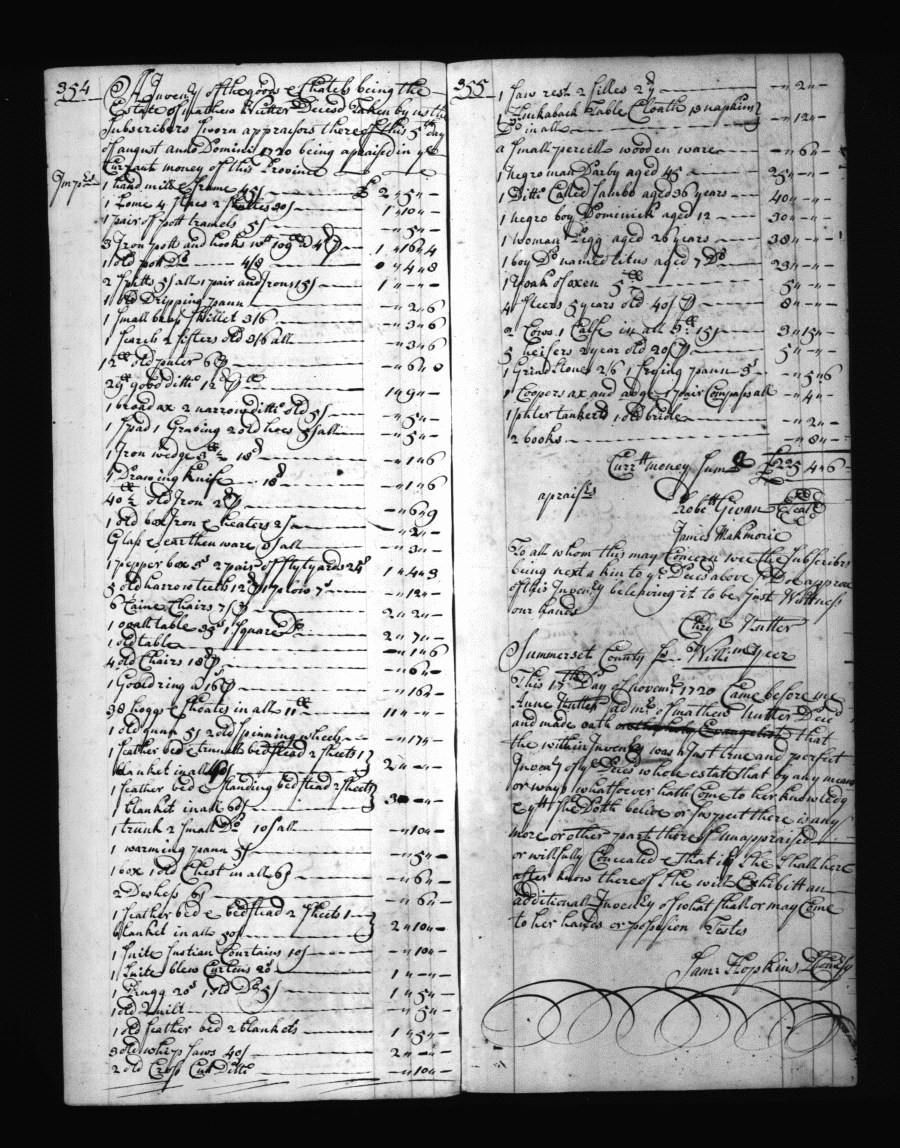 354
An Inventy of the goods & Chatels being the
Estate of Mathew Nutter Decesd Taken by us the
Subscribers sworn appraisors there of this 5th day
of august anno Domini 1720 being apraised in ye
Currant money of this Province
Imps
1 hand mill & frame 45/ £ 2 " 5 " -
1 Lome 4 2 30/ 1 " 10 " -
1 pair of pott tramels 5/ - " 5 " -
3 Iron potts and hooks wt 109 a 4 1 " 16 " 4
1 old pott Do 4/8 0 " 4 " 8
2 spitts 5/ all 1 pair andirons 15/ 1 " - " -
1 old Dripping pann - " 2 " 6
1 Small brass Skillet 3/6 - " 3 " 6
1 Search 2 sifters old 3/6 all - " 3 " 6
12 old puter 6 - " 6 " 0
29 good ditto 12 1 " 9 " -
1 broad ax 2 narrow ditto old 5/ - " 5 " -
1 spad 1 Grabing 2 old hoes 5/ all - " 5 " -
1 Iron wedge 18d - " 1 " 6
1 Drawing knife 18d - " 1 " 6
40 old Iron 2 - " 6 " 9
1 old box Iron & heaters 2/ - " 2 " -
Glass & earthen ware 3/ all - " 3 " -
1 pepper box 2 pair of styl yards 24s 1 " 4 " 3
5 old harrow teeth 12 - " 12 " -
6 Caine Chairs 7/ 2 " 2 " -
1 ovall table 35s 1 Square Do 2 " 7 " -
1 old table - " 1 " 6
4 old Chairs 18 - " 6 " -
1 Goold ring a 16 - " 16 " -
38 hoggs & shoates in all 11 11 " - " -
1 old gunn 5/ 2 old spinning wheels - " 17 " -
1 feather bed & trunnle bedstead 2 sheets 1
blanket in all 40/ 2 " - " -
1 feather bed & standing bedstead 2 sheets
1 blanket in all 60/ 3 " - " -
1 trunk 2 Small Do 10/ all - " 10 " -
1 warming pann 5/ - " 5 " -
1 box 1 old Chest in all 6 - " 6 " -
2 Desks 6 - " 6 " -
1 feather bed & bedstead 2 Sheets 1
blanket in all 50/ 2 " 10 " -
1 Suite fustian Courtains 10/ - " 10 " -
1 Suite blew Curtens 20s 1 " - " -
1 Rugg 20s 1 old Do 5/ 1 " 5 " -
1 old Quilt - " 5 " -
1 old feather bed 2 blankets 1 " 5 " -
3 old whip saws 40/ 2 " - " -
2 old Cross Cutt Ditto - " 10 " -
355
1 saw rest 2 filles 2 - " 2 " -
1 Huckaback table Cloath napkins
Do in all - " 12 " -
a Small percell wooden ware - " 6 " -
1 Negro man Darby aged 45 25 " - " -
1 Ditto Called Sambo aged 36 years 40 " - " -
1 negro boy Domenick aged 12 30 " - " -
1 woman Pegg aged 26 years 38 " - " -
1 boy Do named titus aged 7 Do 23 " - " -
1 Yoak of oxen 5 5 " - " -
4 steers 5 years old 40/ 8 " - " -
2 Cows 1 Calfe in all 3 15/ 3 " 15 " -
5 heifers 2 year old 20/ 5 " - " -
1 Grindstone 2/6 1 frying pann 3s - " 5 " 6
1 Coopers ax and adge 1 pair Compass all - " 4 " -
1 tankerd 1 old bridle - " 2 " -
2 books - " 8 " -
Currt money Sum £225 " 4 " 6
apraisrs
Robt Givan
James Makmorie
To all whom this may Concern wee the Subscribers
being next a kin to ye Decesd above Do approve
of this Inventy beleiving it to be Just Wittness
our hands
Chrs Nutter
Summerset County Ss Willm Geer
This 15th Day of novemr 1720 Came before me
Anne Nutter admx of mathew Nutter Decd
and made oath on the holy Evangelist that
the within Inventy was a Just true and perfect
Inventy of ye Deceds whole estate that by any means
or ways whatsoever hath Come to her knowledg
& yt She Doth belive or Suspect there is any
more or other part thereof unappraised
or willfully Concealed & that if She Shall here
after know thereof She will Exhibitt an
additionall Inventy of what shall or may Come
to her hands or possession Testes
Samr Hopkins D Comsy